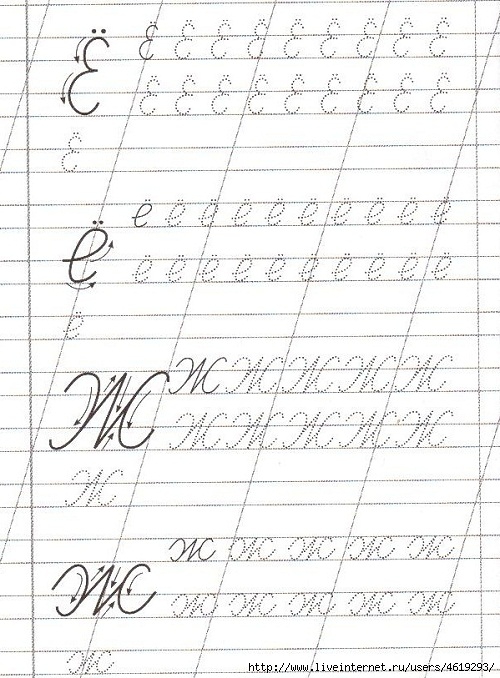 Ё Ё Ё Ё Ё Ё Ё Ё Ё Ё
Ё Ё Ё Ё Ё Ё Ё Ё Ё
Ё
ё ё ё ё ё ё ё ё ё ё ё
ё ё ё ё ё ё ё ё ё ё
ё
Ж Ж Ж Ж Ж Ж
Ж Ж Ж Ж Ж
Ж
ж ж ж ж ж ж
ж ж ж ж ж
ж
http://www.liveinternet.ru/users/4619293/